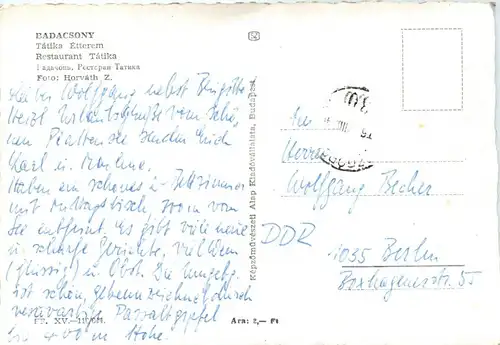 BADACSONY
Tátika Étterem
Restaurant Tátika
Бадачонь, Ресторан Татика
Foto: Horváth Z.
Lieber Wolfgang nebst Brigitte
Herzl. Urlaubsgrüße vom schö-
nen Plattensee senden Euch
Karl u. Marlene.
Haben ein schönes 2-Bettzimmer
mit Mittagstisch, 200 m vom
See entfernt. Es gibt viele neue
u. scharfe Gerichte, viel Wein
(flüssig) u. Obst. Die Umgebg.
ist schön, gekennzeichnet durch
Basaltgipfel
bis 400 m Höhe.
Ára: 2,— Ft
Képzőművészeti Alap Kiadóvállalata, Budapest
Herrn
Wolfgang Becher
DDR
1035 Berlin
Boxhagenerstr. 55